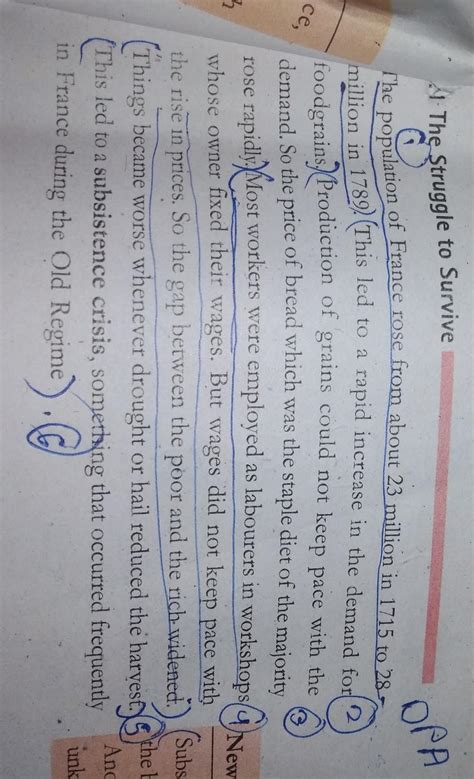 The Struggle to Survive
DPA
①
The population of France rose from about 23 million in 1715 to 28
million in 1789. (This led to a rapid increase in the demand for ②
foodgrains.) (Production of grains could not keep pace with the
demand. So the price of bread which was the staple diet of the majority ③
rose rapidly.) (Most workers were employed as labourers in workshops ④
whose owner fixed their wages. But wages did not keep pace with
the rise in prices. So the gap between the poor and the rich widened.)
(Things became worse whenever drought or hail reduced the harvest.) ⑤
(This led to a subsistence crisis, something that occurred frequently
in France during the Old Regime). ⑥
ce,
New
Subs
the
And
unk